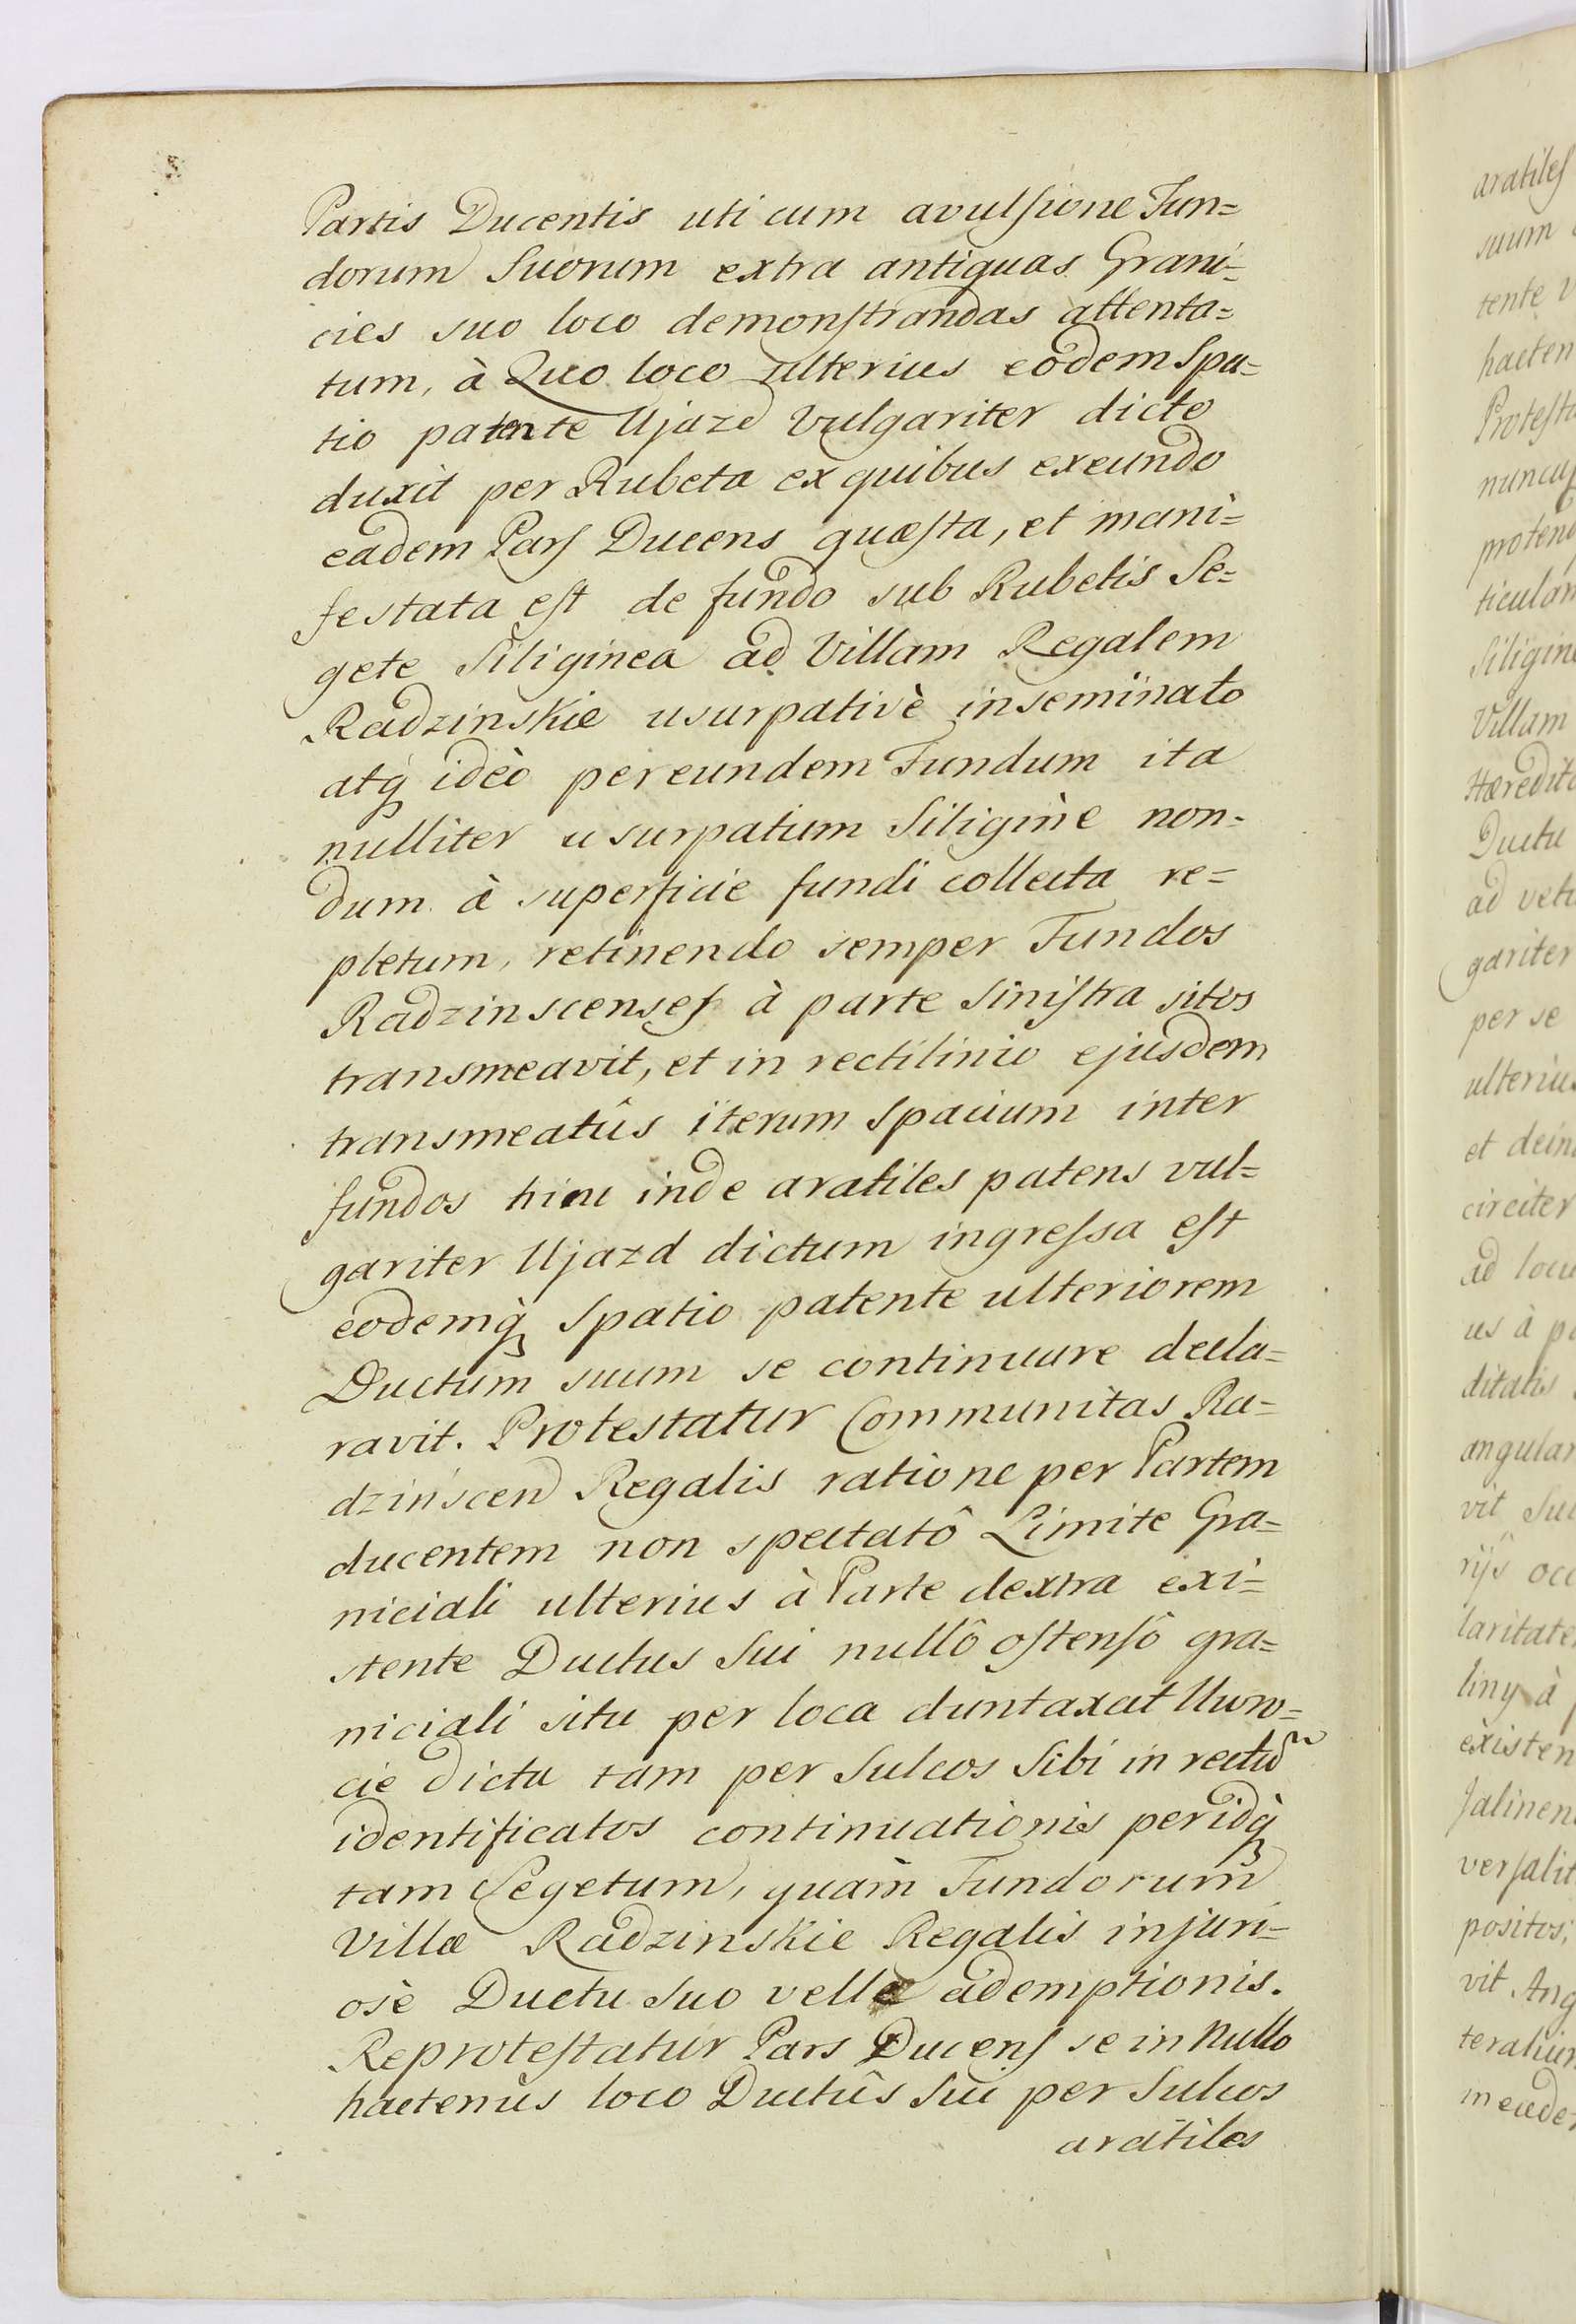 Partis Ducentis uti cum avulsione Fun=
dorum Suorum extra antiquas Grani=
cies suo loco demonstrandas attenta=
tum, à Quo loco ulterius eodem Spa=
tio patente Ujazd Vulgariter dicto
duxit per Rubeta ex quibus exeundo
eadem Pars Ducens quæsta, et mani=
festata est de fundo sub Rubetis Se=
gete Siliginea ad Villam Regalem
Radzinskie usurpativè inseminato
atq̀ ideò per eundem Fundum ita
nulliter usurpatum Siligine non=
dum à superficie fundi collecta re=
pletum, retinendo semper Fundos
Radzinscenses à parte Sinistra sitos
transmeavit, et in rectilinio ejusdem
transmeatûs iterum Spacium inter
fundos hinc inde aratiles patens vul=
gariter Ujazd dictum ingressa est
eodemq̀ Spatio patente ulteriorem
Ductum suum se continuare decla=
ravit. Protestatur Communitas Ra=
dzinscen Regalis ratione per Partem
ducentem non spectatô Limite Gra=
niciali ulterius à Parte dextra exi=
stente Ductus Sui nullô ostensô gra=
niciali situ per loca duntaxat Uwro=
cie dicta tam per Sulcos Sibi in rectũ
identificatos continuationis peridq̀
tam Segetum, quàm Fundorum
Villæ Radzinskie Regalis injuri=
osè Ductu Suo velle ademptionis.
Reprotestatur Pars Ducens se in Nullo
hactenus loco Ductûs Sui per Sulcos
aratiles
aratiles
suum
tente
hacten
Protesta
nuncup
protend
ticular
Siligine
Villam
Hæredita
Ductu
ad vete
gariter
per se
ulterius
et dein
circiter
ad locu
us à pa
ditatis
angular
vit Su
rijs occ
laritate
liny à
existen
Jalinen
versalit
positos;
vit. Ang
teralium
in eade